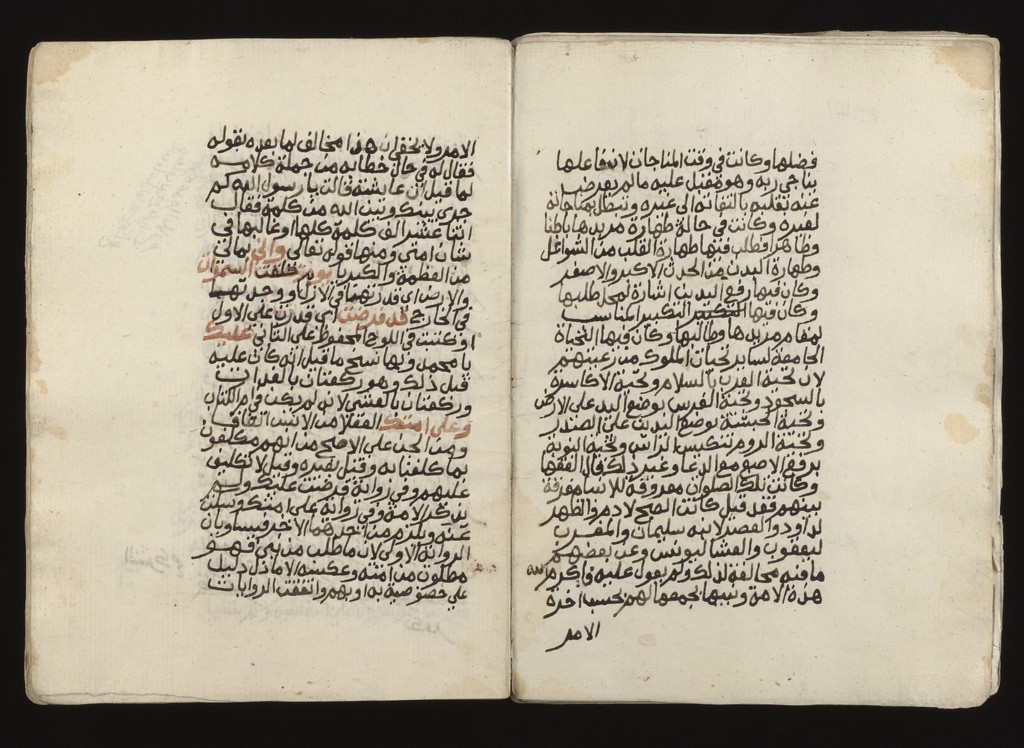 فضلها وكانت في وقت المناجات لان فاعلها
يناجي ربه وهو مقبل عليه ما لم يعرض
عنه بقلبه بالتفاته الى غيره وتبطل مناجاته
لغيره وكانت في حالة طهارة مريدها باطنا
وظاهرا فطلب فيها طهارة القلب من الشواغل
وطهارة البدن من الحدث الاكبر والاصغر
وكان فيها رفع اليدين اشارة لمحل طلبها
وكان فيها التكبير المناسب
لمقام مريدها وطالبها وكان فيها التحيات
الجامعة لساير تحيات الملوك من رعيتهم
لان تحية العرب بالسلام وتحية الاكاسرة
بالسجود وتحية الفرس بوضع اليد على الارض
وتحية الحبشة بوضع اليدين على الصدر
وتحية الروم بتنكيس الراس وتحية النوبة
برفع الاصبع مع الدعا وغير ذلك قال الفقها
وكانت تلك الصلوات معروفة للانبيا مفرقة
بينهم فقد قيل كانت الصبح لادم والظهر
لداود والعصر لابنه سليمان والمغرب
ليعقوب والعشا ليونس وعن بعضهم
ما فيه مخالفة لذلك ولم يعول عليه فاكرم الله
هذه الامة ونبيها بجمعها لهم بحسب اخرة
الامر
الامر ولا يخفى ان هذا مخالف لما بعده بقوله
فقال له في حال خطابه من جملة كلامه
لما قيل ان عايشة قالت يا رسول الله كم
جرى بينك وبين الله من كلمة فقال
اثنا عشر الف كلمة كلها او غالبها في
شان امتي ومنها قوله تعالى واني بمالي
من العظمة والكبريا يوم خلقت السموات
والارض اي قدرتهما في الازل او وجدتهما
في الخارج قد فرضت اي قدرت على الاول
او كتبت في اللوح المحفوظ على الثاني عليك
يا محمد وبها نسخ ما قيل انه كان عليه
قبل ذلك وهو ركعتان بالغداة
وركعتان بالعشي لانه لم يكن في ام الكتاب
وعلى امتك العقلا من الانس اتفاقا
ومن الجن على الاصح من انهم مكلفون
بما كلفنا به وقيل بغيره وقيل لا تكليف
عليهم وفي رواية فرضت عليك ولم
يذكر الامة وفي رواية على امتك وسكت
عنه ويلزم من احدهما الاخر فيساويان
الرواية الاولى لان ما طلب من نبي فهو
مطلوب من امته وعكسه الا ما دل دليل
على خصوصية به او بهم واتفقت الروايات